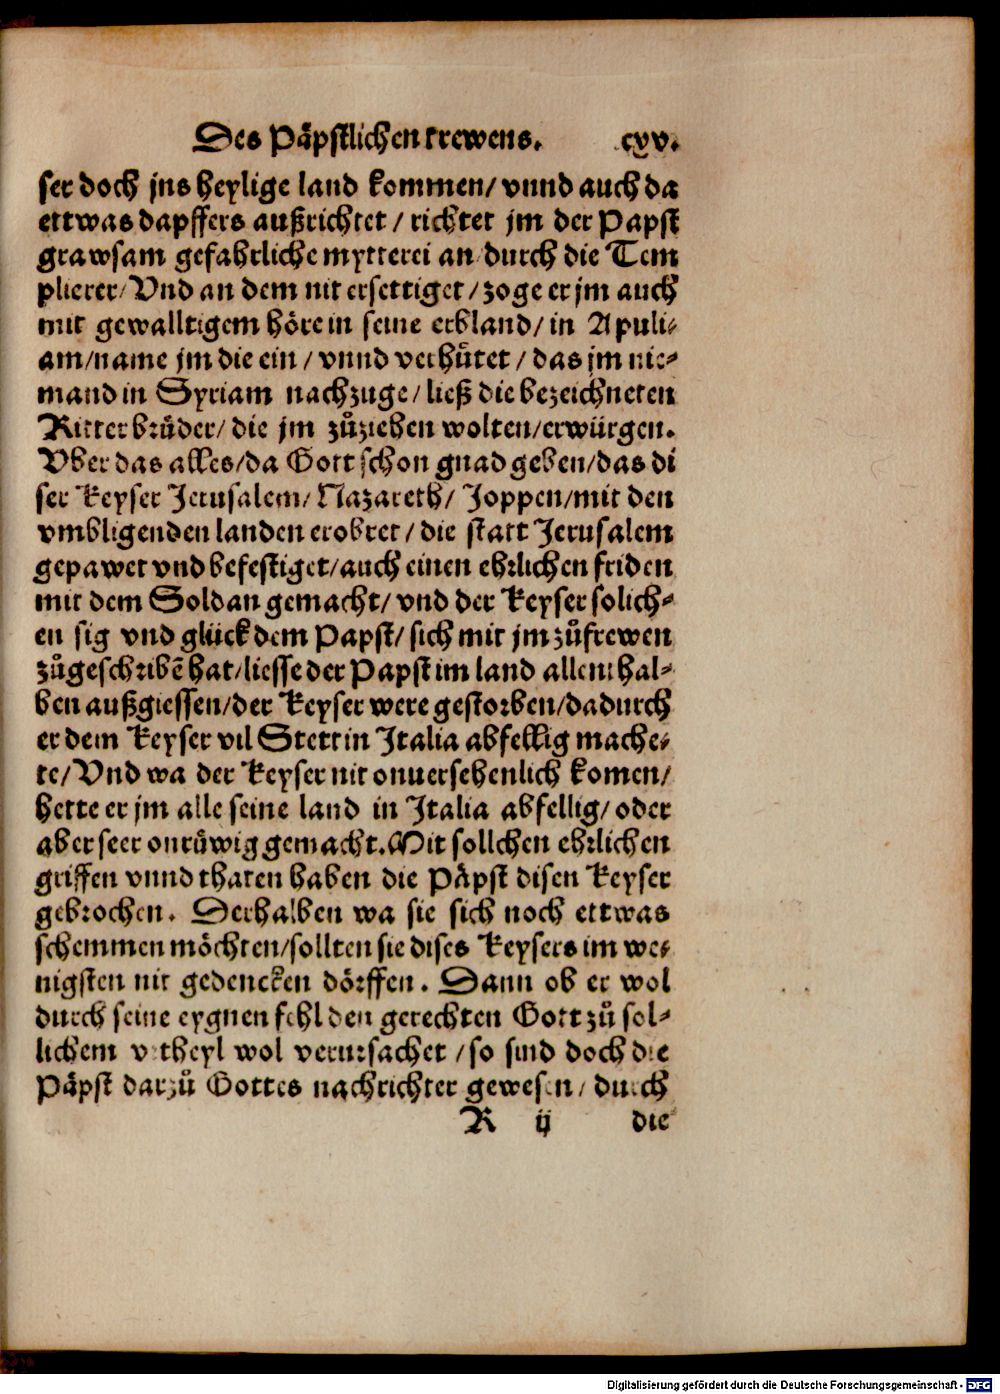 Des Päpstlichen trewens. cxv.
ser doch jns heylige land kommen/ vnnd auch da
ettwas dapffers außrichtet / richtet jm der Papst
grawsam gefahrliche mytterei an durch die Tem
plierer/ Vnd an dem nit ersettiget / zoge er jm auch
mit gewalltigem höre in seine erbland/ in Apuli⸗
am/name jm die ein / vnnd verhütet / das jm nie⸗
mand in Syriam nachzuge / ließ die bezeichneten
Ritter brůder/ die jm zůziehen wolten/erwürgen.
Vber das alles/da Gott schon gnad geben/das di
ser Keyser Jerusalem/ Nazareth/ Joppen/mit den
vmbligenden landen erobret / die statt Jerusalem
gepawet vnd befestiget/auch einen ehrlichen friden
mit dem Soldan gemacht/ vnd der Keyser solich⸗
en sig vnd glück dem Papst/ sich mit jm zůfrewen
zůgeschribē hat/liesse der Papst im land allenthal⸗
ben außgiessen/der Keyser were gestorben/dadurch
er dem Keyser vil Stett in Italia abfellig mache⸗
te/Vnd wa der Keyser nit onuersehenlich komen/
hette er jm alle seine land in Italia abfellig/ oder
aber seer onrůwig gemacht. Mit sollchen ehrlichen
griffen vnnd thaten haben die Päpst disen Keyser
gebrochen. Derhalben wa sie sich noch ettwas
schemmen möchten/sollten sie dises Keysers im we⸗
nigsten nit gedencken dörffen. Dann ob er wol
durch seine eygnen fehl den gerechten Gott zů sol⸗
lichem vrtheyl wol verursachet / so sind doch die
Päpst darzů Gottes nachrichter gewesen / durch
R ij die
Digitalisierung gefördert durch die Deutsche Forschungsgemeinschaft - DFG